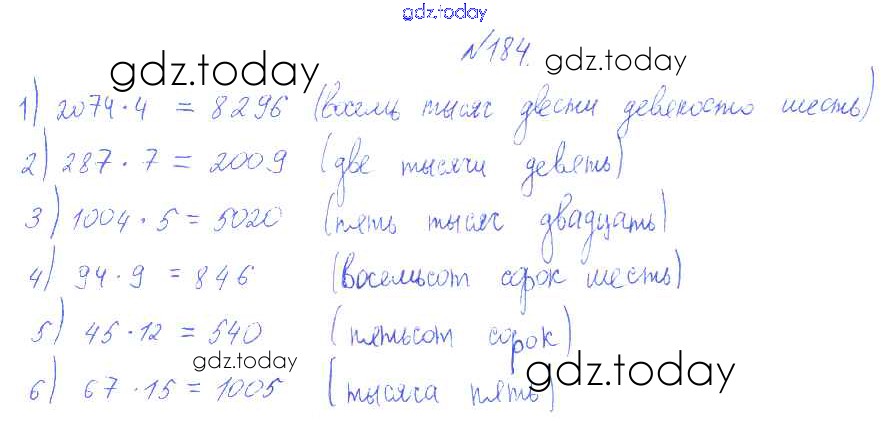 gdz.today
№184. gdz.today
gdz.today
1) 2074·4 = 8296 (восемь тысяч двести девяносто шесть)
2) 287·7 = 2009 (две тысячи девять)
3) 1004·5 = 5020 (пять тысяч двадцать)
4) 94·9 = 846 (восемьсот сорок шесть)
5) 45·12 = 540 (пятьсот сорок)
gdz.today gdz.today
6) 67·15 = 1005 (тысяча пять)